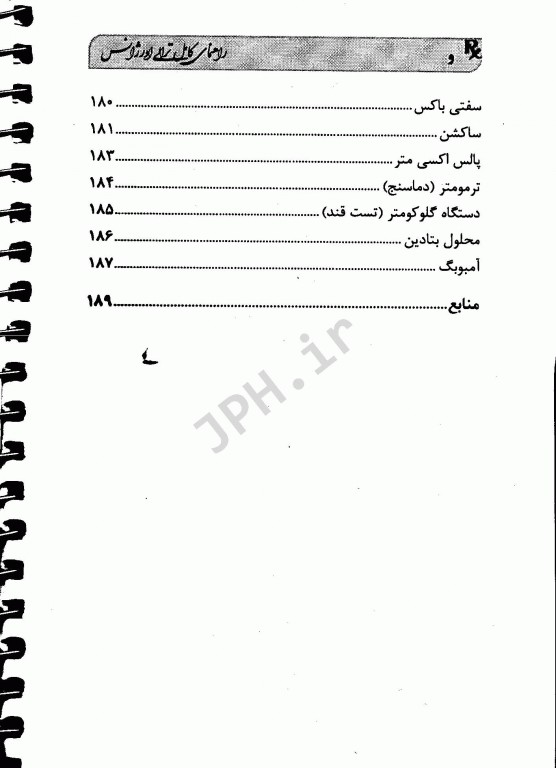 Rx و راهنمای کامل ترالی اورژانس
سفتی باکس ........ ۱۸۰
ساکشن ........ ۱۸۱
پالس اکسی متر ........ ۱۸۳
ترمومتر (دماسنج) ........ ۱۸۴
دستگاه گلوکومتر (تست قند) ........ ۱۸۵
محلول بتادین ........ ۱۸۶
آمبوبگ ........ ۱۸۷
منابع ........ ۱۸۹
JPH.ir